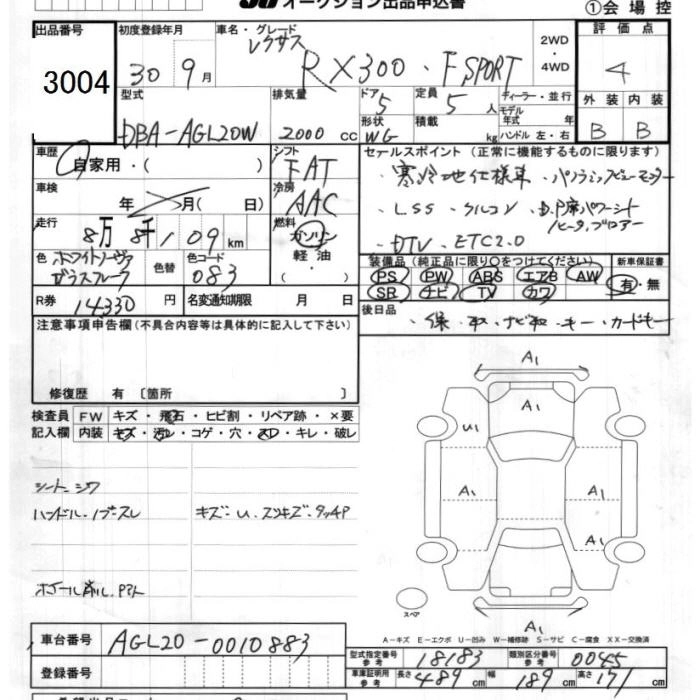 オークション出品申込書
①会場控
出品番号
3004
初度登録年月
30 9月
車名・グレード
レクサス
RX300・F SPORT
2WD・4WD
評価点
4
外装 内装
B B
型式
DBA-AGL20W
排気量
2000 cc
ドア 5
形状 WG
定員 5人
積載 kg
ディーラー・並行
モデル年式 年式
ハンドル 左・右
車歴
自家用・( )
シフト
FAT
車検
年 月( 日)
冷房
AAC
走行
8万 8千 109 km
燃料
ガソリン
軽油
・( )
色 ホワイトノーヴァ
ガラスフレーク
色替
色コード
083
R券 14330 円
名変通知期限 月 日
セールスポイント (正常に機能するものに限ります)
・寒冷地仕様車・パノラミックビューモニター
・LSS・クルコン・D.P席パワーシート
ヒータ、ブロアー
・DTV・ETC2.0
装備品(純正品に限り○をつけてください) 新車保証書
PS PW ABS エアB AW
SR ナビ TV カワ
有・無
後日品
・保・取・ナビ取・キー・カードキー
注意事項申告欄(不具合内容等は具体的に記入して下さい)
修復歴 有 〔箇所 〕
検査員 FW キズ・飛石・ヒビ割・リペア跡・×要
記入欄 内装 キズ・汚レ・コゲ・穴・スレ・キレ・破レ
シートシワ
ハンドル・ノブスレ
キズ・U・スリキズ・タッチP
ホイール削ル・P
A1
A1
U1
A1
A1
A1
A1
スペア
A-キズ E-エクボ U-凹み W-補修跡 S-サビ C-腐食 XX-交換済
車台番号 AGL20-0010883
登録番号
型式指定番号 参考 18183
類別区分番号 参考 0045
車庫証明用 参考 長さ 489 cm 幅 189 cm 高さ 171 cm